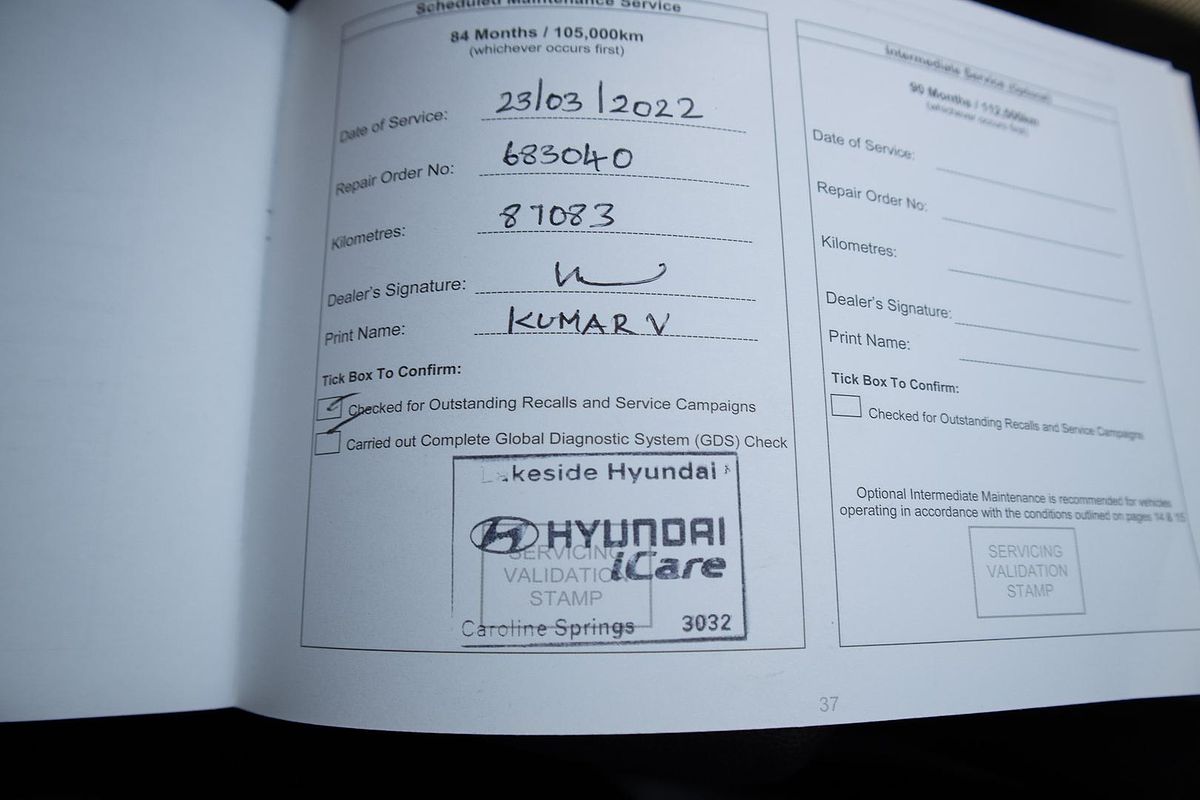 Scheduled Maintenance Service
84 Months / 105,000km
(whichever occurs first)
Date of Service: 23/03/2022
Repair Order No: 683040
Kilometres: 87083
Dealer's Signature:
Print Name: KUMAR V
Tick Box To Confirm:
Checked for Outstanding Recalls and Service Campaigns
Carried out Complete Global Diagnostic System (GDS) Check
Lakeside Hyundai
HYUNDAI
iCare
SERVICING
VALIDATION
STAMP
Caroline Springs 3032
Intermediate Service (Optional)
90 Months / 112,500km
(whichever occurs first)
Date of Service:
Repair Order No:
Kilometres:
Dealer's Signature:
Print Name:
Tick Box To Confirm:
Checked for Outstanding Recalls and Service Campaigns
Optional Intermediate Maintenance is recommended for vehicles
operating in accordance with the conditions outlined on pages 14 & 15
SERVICING
VALIDATION
STAMP
37